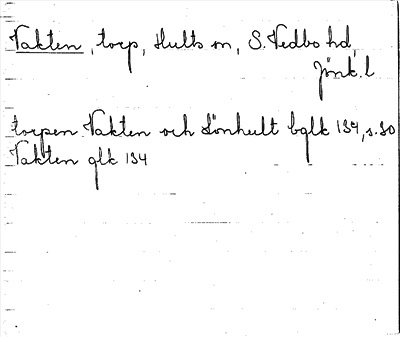 Vakten, torp, Hults sn, S. Vedbo hd,
Jönk. l
torpen Vakten och Lönhult bglk 134, s. 30
Vakten glk 134